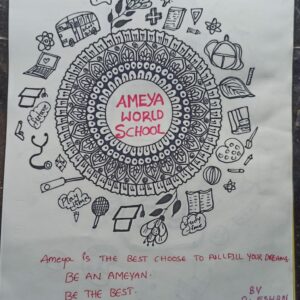 AMEYA
WORLD
SCHOOL
Play time
Study time
Ameya is THE BEST CHOOSE TO FULLFILL YOUR DREAMS
BE AN AMEYAN.
BE THE BEST.
BY